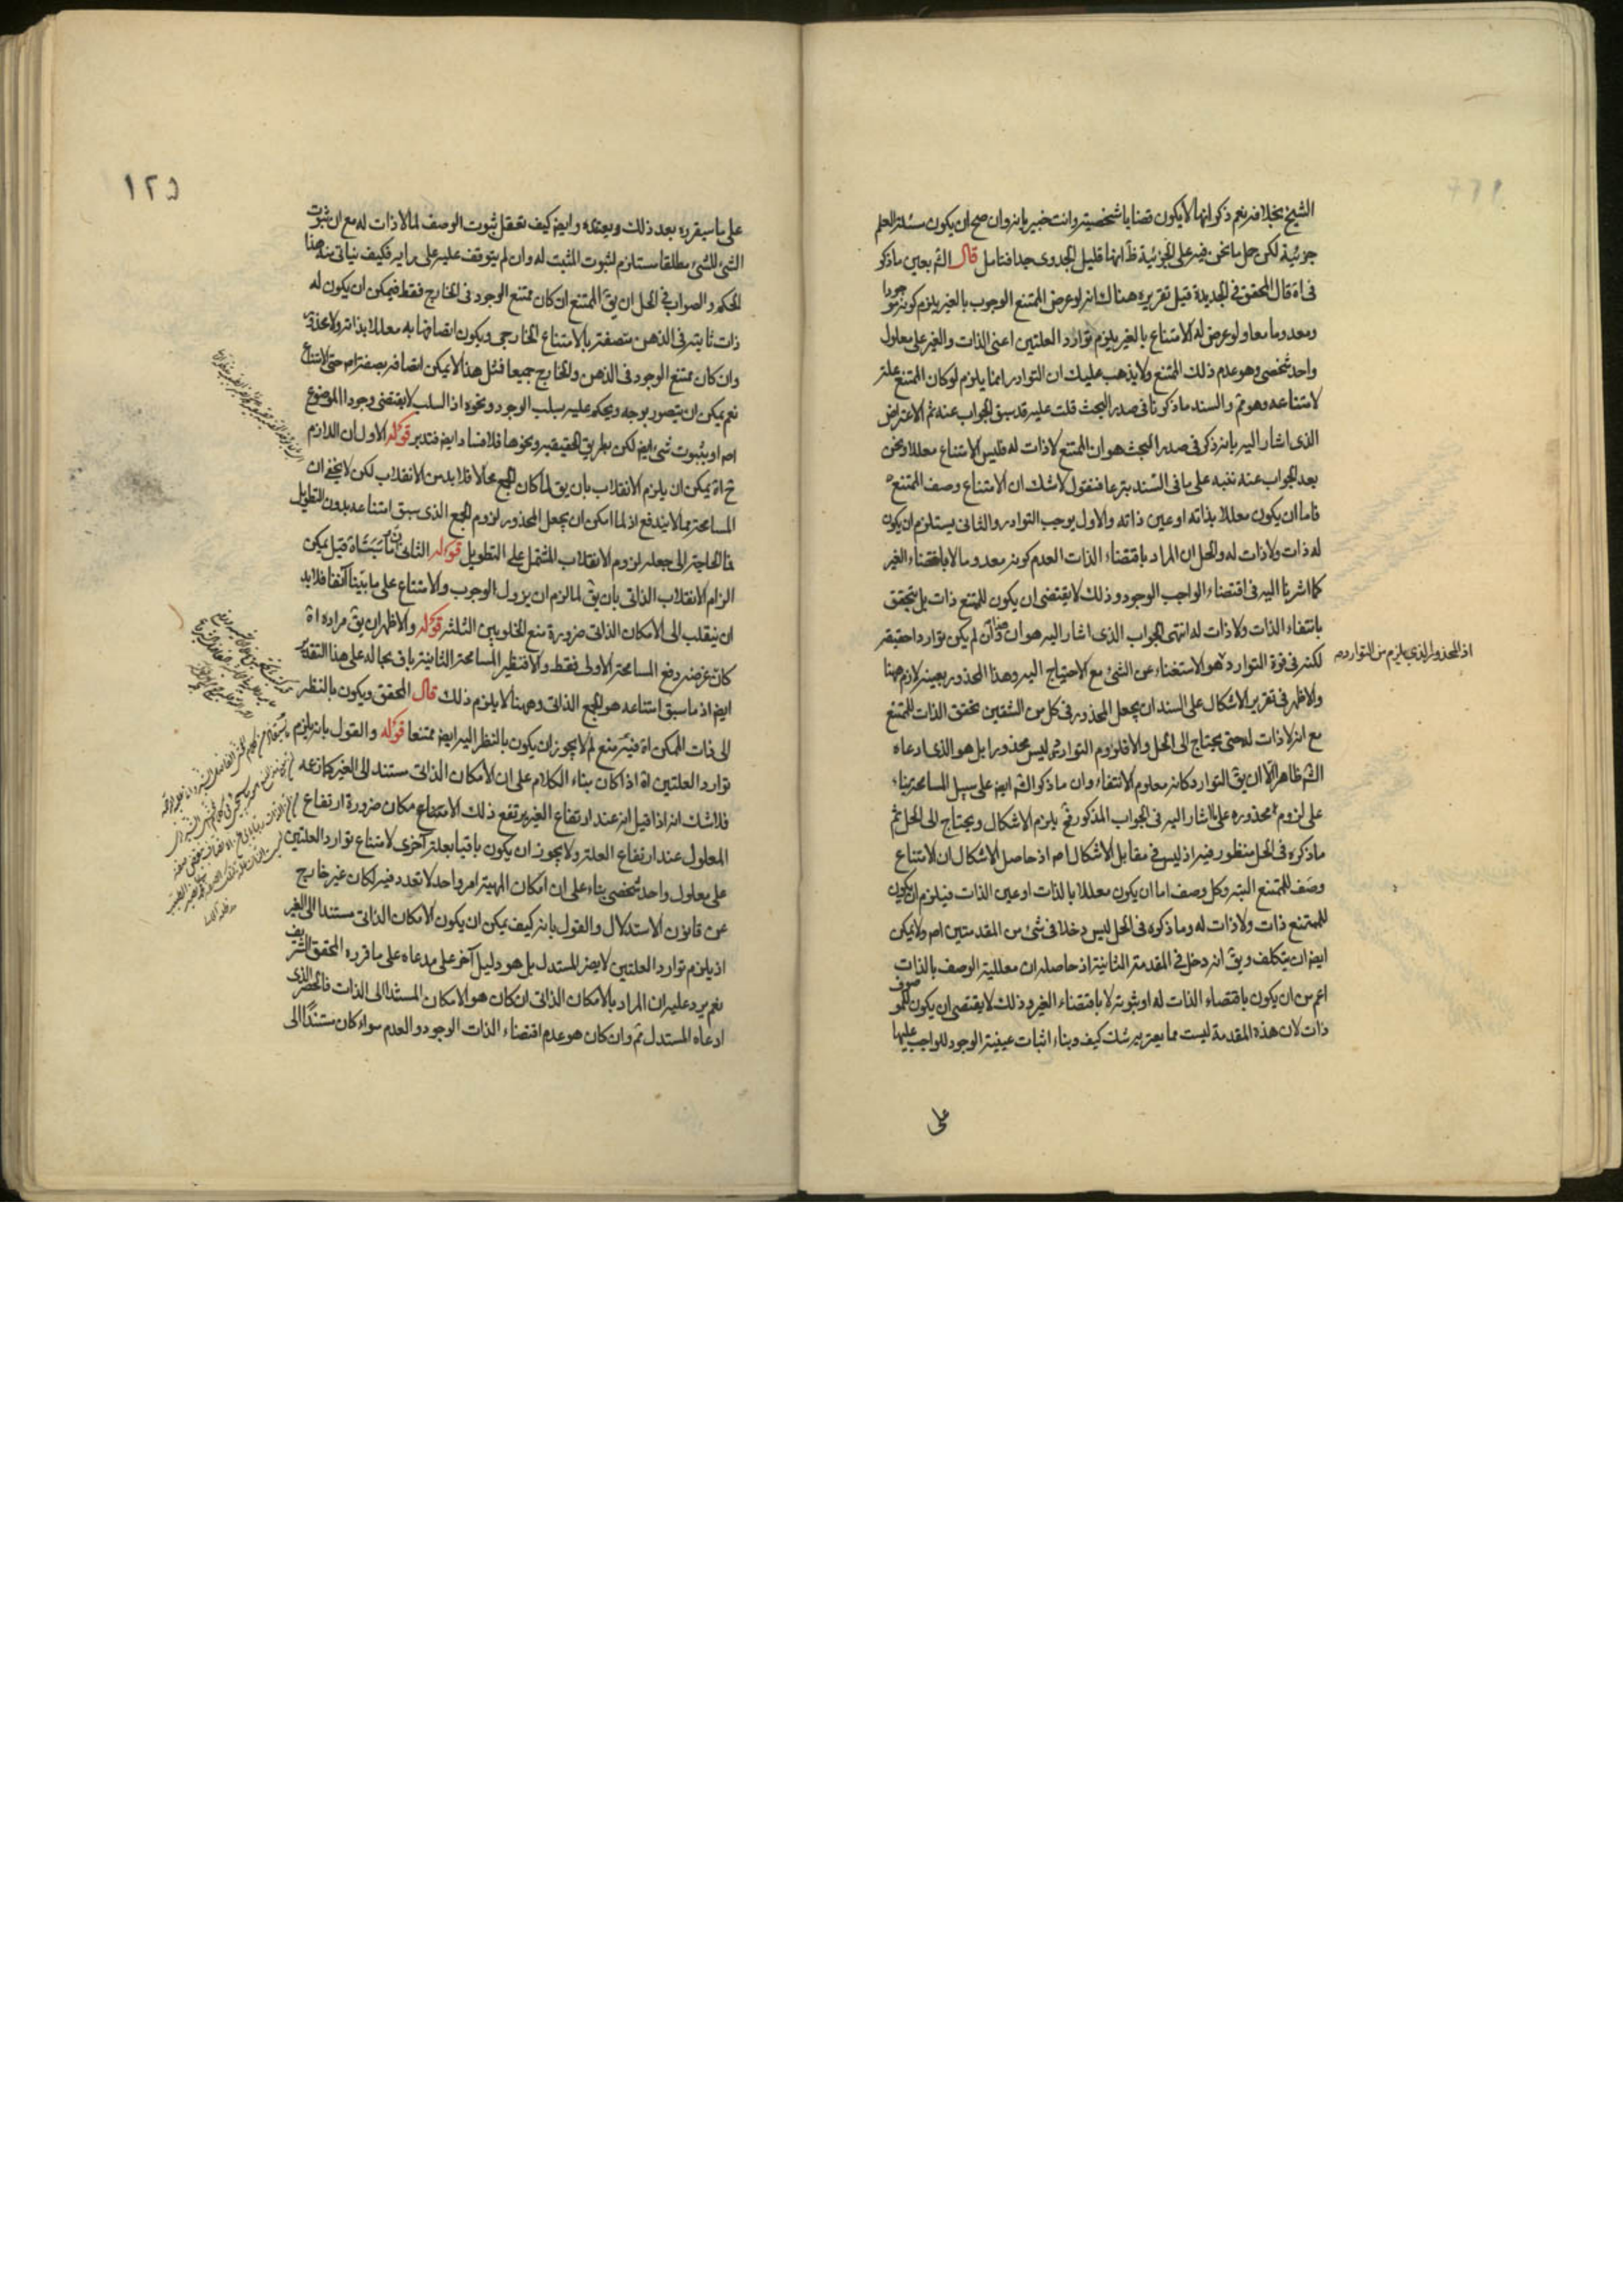 الشيخ بخلافه نعم ذكر انها لا يكون قضايا شخصية وانت خبير بانه وان صح ان يكون مسئلة العلم
جزئية لكن حمل ما نحن فيه على الجزئية ظ انها قليل الجدوى جدا فتامل قال الش بعين ما ذكر
في اه قال المحقق في الجديدة قيل تقريره هناك انه لو عرض الممتنع الوجوب بالغير يلزم كونه موجودا
ومعدوما معا ولو عرض له الامتناع بالغير يلزم توارد العلتين اعنى الذات والغير على معلول
واحد شخصى وهو عدم ذلك الممتنع ولا يذهب عليك ان التوارد انما يلزم لو كان الممتنع علة
لامتناعه وهو مم والسند ما ذكرنا في صدر البحث قلت عليه قد سبق الجواب عنه ثم الاعتراض
الذى اشار اليه بانه ذكر في صدر البحث هو ان الممتنع لا ذات له فليس الامتناع معللا ونحن
بعد الجواب عنه ننبه على ما في السند تبرعا فنقول لا شك ان الامتناع وصف الممتنع
فاما ان يكون معللا بذاته او عين ذاته والاول يوجب التوارد والثانى يستلزم ان يكون
له ذات ولا ذات له والحل ان المراد باقتضاء الذات العدم كونه معدوما لا باقتضاء الغير
كما اشرنا اليه في اقتضاء الواجب الوجود وذلك لا يقتضى ان يكون للممتنع ذات بل يتحقق
بانتفاء الذات ولا ذات له انتهى الجواب الذى اشار اليه هو ان هذا وان لم يكن توارد احقيقة
لكنه في قوة التوارد وهو الاستغناء عن الشئ مع الاحتياج اليه وهذا المحذور بعينه لازم ههنا
اذ المحذور الذي يلزم من التوارد
والاظهر في تقرير الاشكال على السند ان يجعل المحذور في كل من الشقين تحقق الذات للممتنع
مع انه لا ذات له حتى يحتاج الى الحل والا فلزوم التوارد ثمه ليس محذورا بل هو الذى ادعاه
الش ظاهرا الا ان يق التوارد كانه معلوم الانتفاء وان ما ذكر الش ايض على سبيل المسامحة بناء
على لزوم محذوره على ما اشار اليه في الجواب المذكور فح يلزم الاشكال ويحتاج الى الحل ثم
ما ذكره في الحل منظور فيه اذ ليس في مقابل الاشكال اص اذ حاصل الاشكال ان الامتناع
وصف للممتنع البتة وكل وصف اما ان يكون معللا بالذات او عين الذات فيلزم ان يكون
للممتنع ذات ولا ذات له وما ذكره في الحل ليس دخلا في شئ من المقدمتين اص ولا يمكن
ايض ان يتكلف ويق انه دخل في المقدمة الثانية اذ حاصله ان معللية الوصف بالذات
اعم من ان يكون باقتضاء الذات له او بثبوته لا باقتضاء الغير وذلك لا يقتضى ان يكون للموصوف
ذات لان هذه المقدمة ليست مما يعتريه شك كيف وبناء اثبات عينية الوجود للواجب عليها
على
١٢٥
على ما سيقرره بعد ذلك ويعتقده وايض كيف تعقل ثبوت الوصف لما لا ذات له مع ان ثبوت
الشئ للشئ مطلقا مستلزم لثبوت المثبت له وان لم يتوقف عليه على رايه فكيف يتاتى منه هذا
الحكم والصواب في الحل ان يق الممتنع ان كان ممتنع الوجود في الخارج فقط فيمكن ان يكون له
ذات ثابتة في الذهن متصفة بالامتناع الخارجى ويكون اتصافها به معللا بذاته ولا محذور
وان كان ممتنع الوجود في الذهن والخارج جميعا فمثل هذا لا يمكن اتصافه بصفة اص حتى الامتناع
نعم يمكن ان يتصور بوجه ويحكم عليه بسلب الوجود ونحوه اذ السلب لا يقتضى وجود الموضوع
اص او بثبوت شئ ايض لكن بطريق الحقيقية ونحوها فلا فساد ايض فتدبر قوله الاول ان اللازم
ح اه يمكن ان يلزم الانقلاب بان يق لما كان الجمع محالا فلا بد من الانقلاب لكن لا يخفى ان
المسامحة مما لا يندفع اذ لما امكن ان يجعل المحذور لزوم الجمع الذى سبق امتناعه بدون التطويل
فما الحاجة الى جعله لزوم الانقلاب المشتمل على التطويل قوله الثانى ان ما تشبث اه قيل يمكن
الزام الانقلاب الذاتى بان يق لما لزم ان يزول الوجوب والامتناع على ما بينا آنفا فلا بد
ان ينقلب الى الامكان الذاتى ضرورة منع الخلو بين الثلثة قوله والاظهر ان يق مراده اه
كان غرضه دفع المسامحة الاولى فقط والا فنظير المسامحة الثانية باق بحاله على هذا التقدير
ايض اذ ما سبق امتناعه هو الجمع الذاتى وههنا لا يلزم ذلك قال المحقق ويكون بالنظر
الى ذات الممكن اه فيه منع لم لا يجوز ان يكون بالنظر اليه ايض ممتنعا قوله والقول بانه يلزم
توارد العلتين اه اذا كان بناء الكلام على ان الامكان الذاتى مستند الى الغير كما زعمه
فلا شك انه اذا قيل انه عند ارتفاع الغير يرتفع ذلك الامكان ضرورة ارتفاع
المعلول عند ارتفاع العلة ولا يجوز ان يكون باقيا بعلة آخرى لامتناع توارد العلتين
على معلول واحد شخصى بناء على ان امكان المهية امر واحد لا تعدد فيه لكان غير خارج
عن قانون الاستدلال والقول بانه كيف يمكن ان يكون الامكان الذاتى مستندا الى الغير
اذ يلزم توارد العلتين لا يضر المستدل بل هو دليل آخر على مدعاه على ما قرره المحقق الشريف
نعم يرد عليه ان المراد بالامكان الذاتى ان كان هو الامكان المستند الى الذات فالحصر الذى
ادعاه المستدل مم وان كان هو عدم اقتضاء الذات الوجود والعدم سواء كان مستندا الى